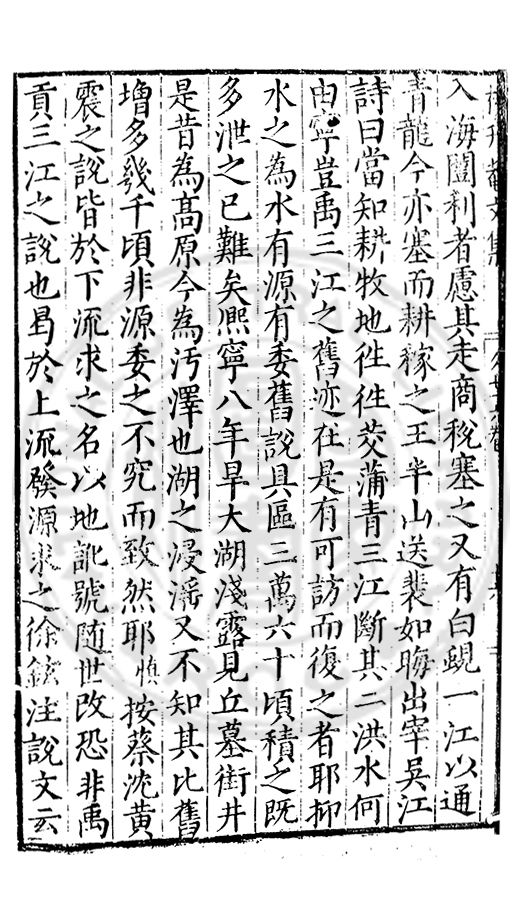 入海闓利者慮其走商稅塞之又有白蜆一江以通
青龍今亦塞而耕稼之王半山送裴如晦出宰吳江
詩曰當知耕牧地徃徃茭蒲青三江斷其二洪水何
由寧豈禹三江之舊迹在是有可訪而復之者耶抑
水之為水有源有委舊說具區三萬六十頃積之既
多泄之已難矣熈寧八年旱大湖淺露見丘墓街井
是昔為高原今為汚澤也湖之浸滛又不知其比舊
增多幾千頃非源委之不究而致然耶慎按蔡沈黃
震之說皆於下流求之名以地訛號随世改恐非禹
貢三江之說也曷於上流發源求之徐鉉注說文云